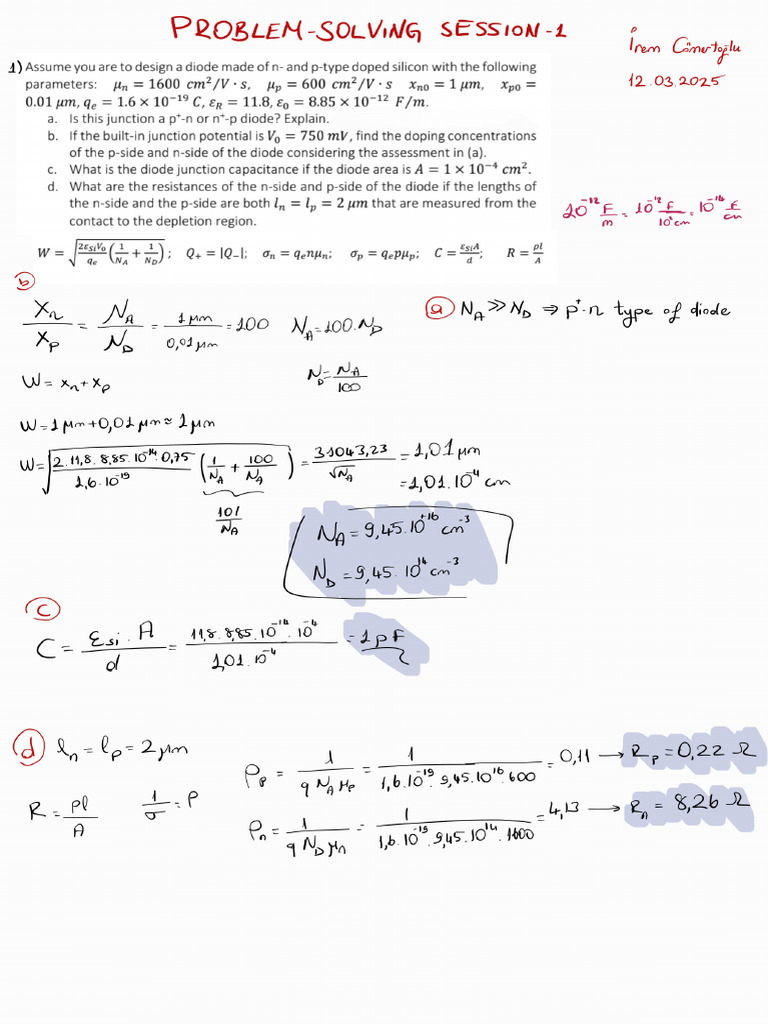 PROBLEM-SOLVING SESSION-1
İrem Cömertoğlu
12.03.2025
1) Assume you are to design a diode made of n- and p-type doped silicon with the following
parameters: μn = 1600 cm²/V · s, μp = 600 cm²/V · s xn0 = 1 μm, xp0 =
0.01 μm, qe = 1.6 × 10⁻¹⁹ C, εR = 11.8, ε0 = 8.85 × 10⁻¹² F/m.
a. Is this junction a p⁺-n or n⁺-p diode? Explain.
b. If the built-in junction potential is V0 = 750 mV, find the doping concentrations
of the p-side and n-side of the diode considering the assessment in (a).
c. What is the diode junction capacitance if the diode area is A = 1 × 10⁻⁴ cm².
d. What are the resistances of the n-side and p-side of the diode if the lengths of
the n-side and the p-side are both ln = lp = 2 μm that are measured from the
contact to the depletion region.
10⁻¹² F/m = 10⁻¹² F/10² cm = 10⁻¹⁴ F/cm
W = √(2εSiV0/qe (1/NA + 1/ND)); Q+ = |Q−|; σn = qenμn; σp = qepμp; C = εSiA/d; R = ρl/A
b
Xn/Xp = NA/ND = 1 μm/0,01 μm = 100 NA = 100.ND
ND = NA/100
a NA >> ND ⇒ p⁺-n type of diode
W = xn + xp
W = 1 μm + 0,01 μm ≈ 1 μm
W = √(2.11,8.8,85.10⁻¹⁴.0,75/1,6.10⁻¹⁹ (1/NA + 100/NA)) = 31043,23/√NA = 1,01 μm
= 1,01.10⁻⁴ cm
101/NA
NA = 9,45.10⁺¹⁶ cm⁻³
ND = 9,45.10¹⁴ cm⁻³
c
C = εsi.A/d = 11,8.8,85.10⁻¹⁴.10⁻⁴/1,01.10⁻⁴ = 1 pF
d ln = lp = 2 μm
R = ρl/A 1/σ = ρ
ρp = 1/q NA μp = 1/1,6.10⁻¹⁹.9,45.10¹⁶.600 = 0,11 → Rp = 0,22 Ω
ρn = 1/q ND μn = 1/1,6.10⁻¹⁹.9,45.10¹⁴.1600 = 4,13 → Rn = 8,26 Ω